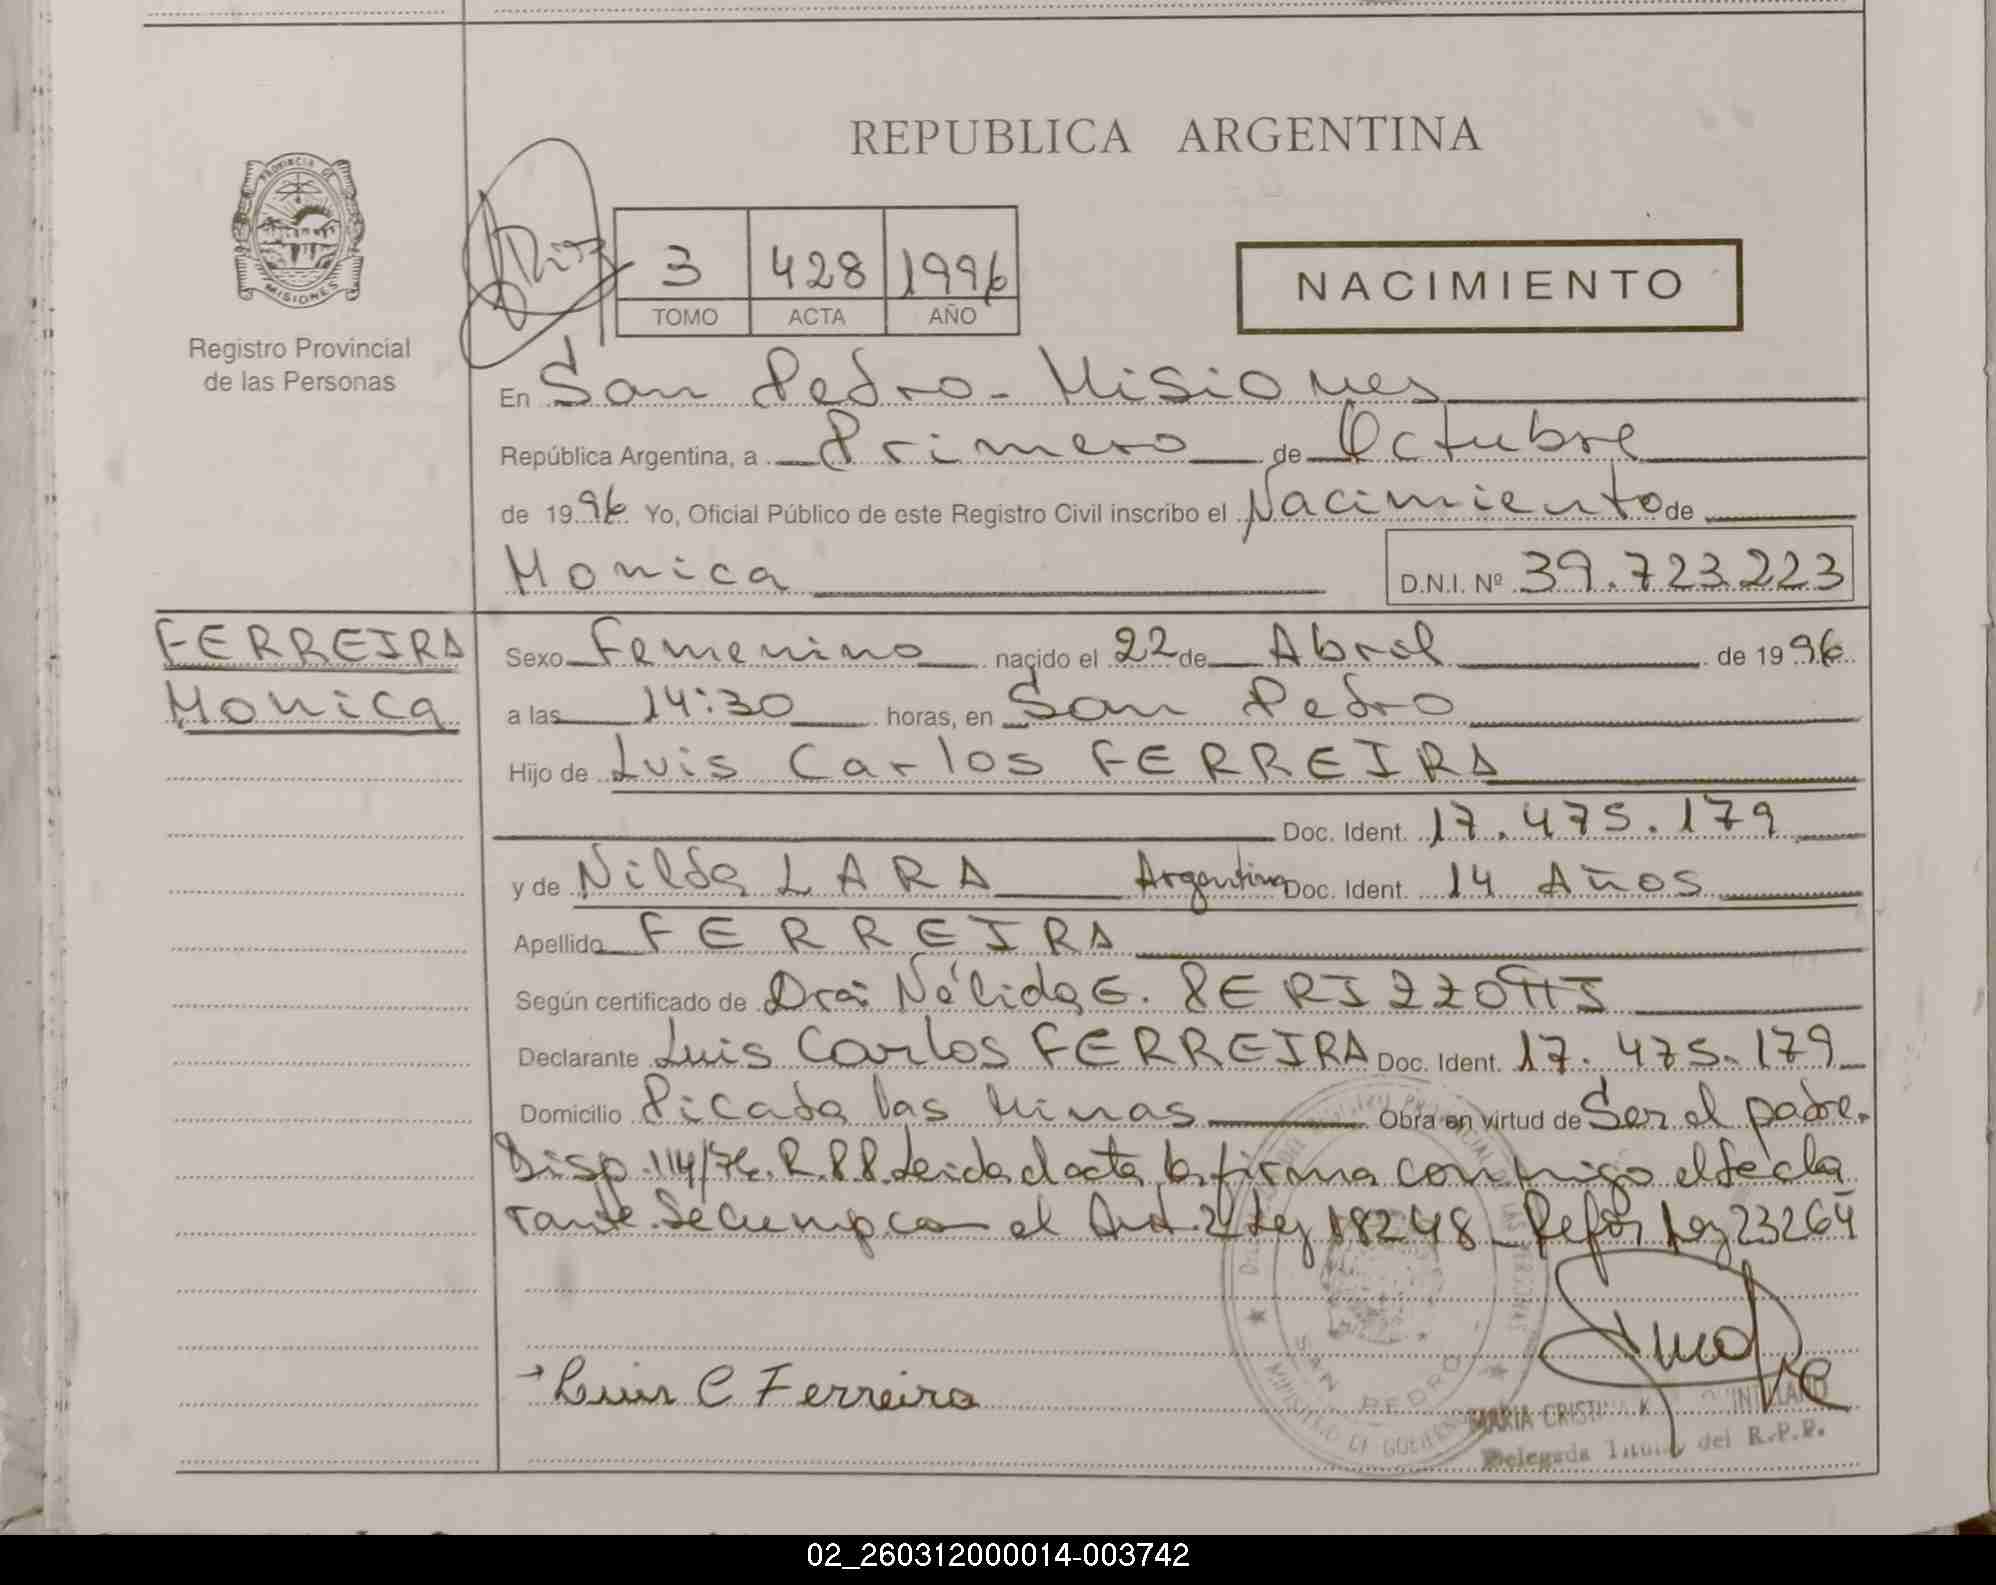 REPUBLICA ARGENTINA
PROVINCIA DE
MISIONES
Registro Provincial
de las Personas
3 428 1996
TOMO ACTA AÑO
NACIMIENTO
En San Pedro - Misiones
República Argentina, a Primero de Octubre
de 1996 Yo, Oficial Público de este Registro Civil inscribo el Nacimiento de
Monica D.N.I. Nº 39.723.223
FERREIRA
Monica
Sexo Femenino nacido el 22 de Abril de 1996
a las 14:30 horas, en San Pedro
Hijo de Luis Carlos FERREIRA
Doc. Ident. 17.475.179
y de Nilda LARA Argentina Doc. Ident. 14 Años
Apellido FERREIRA
Según certificado de Dra: Nélida E. PERIZZOTTI
Declarante Luis Carlos FERREIRA Doc. Ident. 17.475.179
Domicilio Picada las Minas Obra en virtud de Ser el padre.
Disp. 114/76. R.P.P. Leida el acta la firma conmigo el decla
rante. Se cumpca el Art. 2 Ley 18248 - Refor Ley 23264
SAN PEDRO
Luis C Ferreira
MARIA CRISTINA K QUINTILLANO
Delegada Titular del R.P.P.
02_260312000014-003742